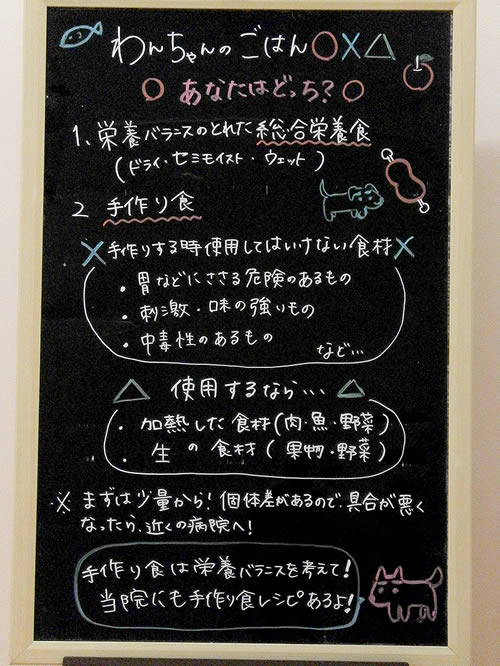 わんちゃんのごはん○×△
○ あなたはどっち?○
1、栄養バランスのとれた総合栄養食
(ドライ・セミモイスト・ウェット)
2 手作り食
×手作りする時使用してはいけない食材×
・胃などにささる危険のあるもの
・刺激・味の強いもの
・中毒性のあるもの
など…
△ 使用するなら… △
・加熱した食材(肉・魚・野菜)
・生の食材(果物・野菜)
※まずは少量から!個体差があるので、具合が悪く
なったら、近くの病院へ!
手作り食は栄養バランスを考えて!
当院にも手作り食レシピあるよ!